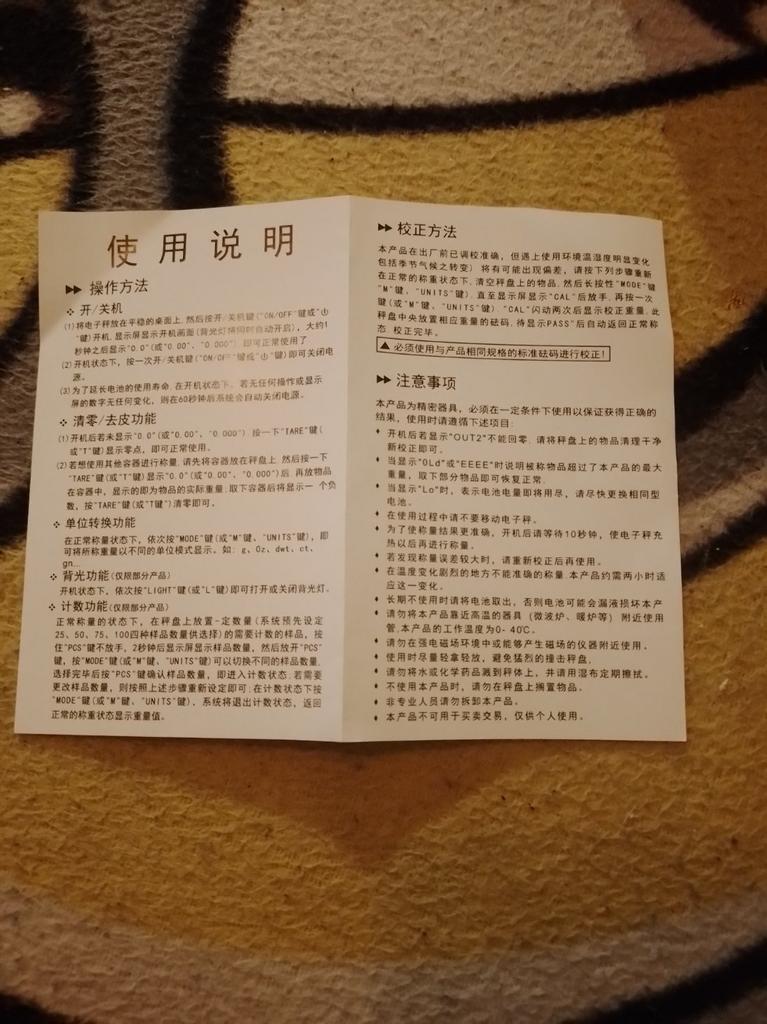 使用说明
▶▶ 操作方法
❖ 开/关机
(1)将电子秤放在平稳的桌面上,然后按开/关机键("ON/OFF"键或"⏻"
键)开机,显示屏显示开机画面(背光灯将同时自动开启),大约1
秒钟之后显示"0.0"(或"0.00"、"0.000")即可正常使用了
(2)开机状态下,按一次开/关机键("ON/OFF"键或"⏻"键)即可关闭电
源。
(3)为了延长电池的使用寿命,在开机状态下,若无任何操作或显示
屏的数字无任何变化,则在60秒钟后系统会自动关闭电源。
❖ 清零/去皮功能
(1)开机后若未显示"0.0"(或"0.00"、"0.000"),按一下"TARE"键(
或"T"键)显示零点,即可正常使用。
(2)若想使用其他容器进行称量,请先将容器放在秤盘上,然后按一下
"TARE"键(或"T"键)显示"0.0"(或"0.00"、"0.000")后,再放物品
在容器中,显示的即为物品的实际重量;取下容器后将显示一个负
数,按"TARE"键(或"T"键)清零即可。
❖ 单位转换功能
在正常称量状态下,依次按"MODE"键(或"M"键、"UNITS"键),即
可将所称重量以不同的单位模式显示。如:g、Oz、dwt、ct、
gn...
❖ 背光功能(仅限部分产品)
开机状态下,依次按"LIGHT"键(或"L"键)即可打开或关闭背光灯。
❖ 计数功能(仅限部分产品)
正常称量的状态下,在秤盘上放置一定数量(系统预先设定
25、50、75、100四种样品数量供选择)的需要计数的样品,按
住"PCS"键不放手,2秒钟后显示屏显示样品数量,然后放开"PCS"
键,按"MODE"键(或"M"键、"UNITS"键)可以切换不同的样品数量,
选择完毕后按"PCS"键确认样品数量,即进入计数状态;若需要
更改样品数量,则按照上述步骤重新设定即可;在计数状态下按
"MODE"键(或"M"键、"UNITS"键),系统将退出计数状态,返回
正常的称重状态显示重量值。
▶▶ 校正方法
本产品在出厂前已调校准确,但遇上使用环境温湿度明显变化
(包括季节气候之转变)将有可能出现偏差,请按下列步骤重新
在正常的称重状态下,清空秤盘上的物品,然后长按住"MODE"键
"M"键、"UNITS"键),直至显示屏显示"CAL"后放手,再按一次
键(或"M"键、"UNITS"键)."CAL"闪动两次后显示校正重量,此
秤盘中央放置相应重量的砝码,待显示PASS"后自动返回正常称
态,校正完毕。
▲ 必须使用与产品相同规格的标准砝码进行校正!
▶▶ 注意事项
本产品为精密器具,必须在一定条件下使用以保证获得正确的
结果,使用时请遵循下述项目:
♦ 开机后若显示"OUT2"不能回零,请将秤盘上的物品清理干净
新校正即可.
♦ 当显示"0Ld"或"EEEE"时说明被称物品超过了本产品的最大
重量,取下部分物品即可恢复正常.
♦ 当显示"Lo"时,表示电池电量即将用尽,请尽快更换相同型
电池。
♦ 在使用过程中请不要移动电子秤.
♦ 为了使称量结果更准确,开机后请等待10秒钟,使电子秤充
热以后再进行称量.
♦ 若发现称量误差较大时,请重新校正后再使用。
♦ 在温度变化剧烈的地方不能准确的称量,本产品约需两小时适
应这一变化。
♦ 长期不使用时请将电池取出,否则电池可能会漏液损坏本产
♦ 请勿将本产品靠近高温的器具(微波炉、暖炉等)附近使用
管,本产品的工作温度为0-40℃.
♦ 请勿在强电磁场环境中或能够产生磁场的仪器附近使用.
♦ 使用时尽量轻拿轻放,避免猛烈的撞击秤盘.
♦ 请勿将水或化学药品溅到秤体上,并请用湿布定期擦拭。
♦ 不使用本产品时,请勿在秤盘上搁置物品。
♦ 非专业人员请勿拆卸本产品。
♦ 本产品不可用于买卖交易,仅供个人使用。